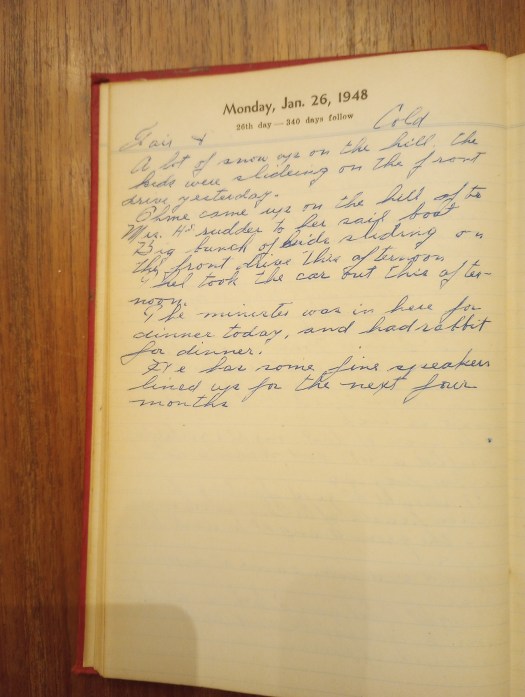 Monday, Jan. 26, 1948
26th day — 340 days follow
Fair & Cold
A lot of snow up on the hill. the
kids were slideing on the front
drive yesterday.
came up on the hill after
Mrs. H's rudder to her sail boat
Big bunch of kids sliding on
the front drive this afternoon
took the car out this after-
noon.
The minister was in here for
dinner today, and had rabbit
for dinner.
He has some fine speakers
lined up for the next four
months